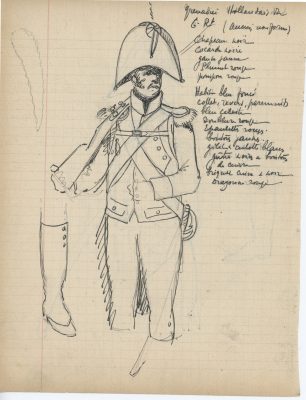 Grenadier Hollandais
6e Rt (ancien uniforme)
Chapeau noir
Cocarde noire
ganse jaune
Plumet rouge
pompon rouge
Habit bleu foncé
collet, revers, parements
bleu céleste
Doublure rouge
Epaulettes rouges
boutons jaunes
gilet culotte blancs
guêtre noire à boutons
de cuivre
cuivre noir
dragonne rouge